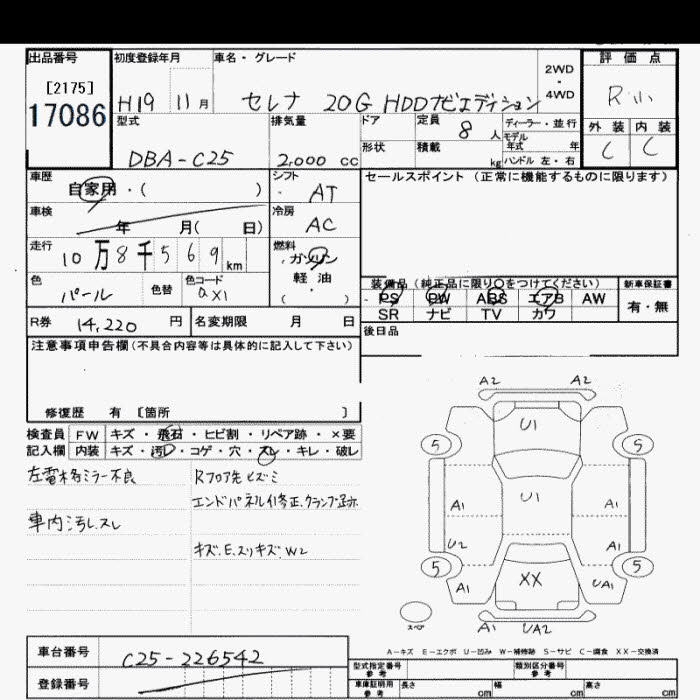 出品番号 初度登録年月 車名・グレード 2WD・4WD 評価点
[2175]
17086
H19 11月 セレナ 20G HDDナビエディション R
型式 排気量 ドア 定員 8人 ディーラー・並行 外装 内装
DBA-C25 2,000 cc 形状 積載 kg モデル年式 年 ハンドル 左・右 C C
車歴 シフト セールスポイント (正常に機能するものに限ります)
自家用・( ) AT
車検 冷房
年 月( 日) AC
走行 燃料
10万8千569km ガソリン
軽油
( )
色 色替 色コード 装備品(純正品に限り○をつけてください) 新車保証書
パール QX1 PS PW ABS エアB AW 有・無
SR ナビ TV カワ
R券 14,220 円 名変期限 月 日 後日品
注意事項申告欄(不具合内容等は具体的に記入して下さい)
修復歴 有 [箇所 ]
検査員 FW キズ・飛石・ヒビ割・リペア跡・×要
記入欄 内装 キズ・汚レ・コゲ・穴・スレ・キレ・破レ
左電格ミラー不良 Rフロア先ヒズミ
エンドパネル修正、クランプ跡
車内汚レ、スレ
キズ、E、スリキズ W2
A2 A2
U1
5 5
U1
A1 A1
U2 A1
5 5
XX
A1 UA1
スペア A1 UA2
A-キズ E-エクボ U-凹み W-補修跡 S-サビ C-腐食 XX-交換済
車台番号 C25-226542 型式指定番号 参考 類別区分番号 参考
登録番号 車庫証明用 参考 長さ cm 幅 cm 高さ cm